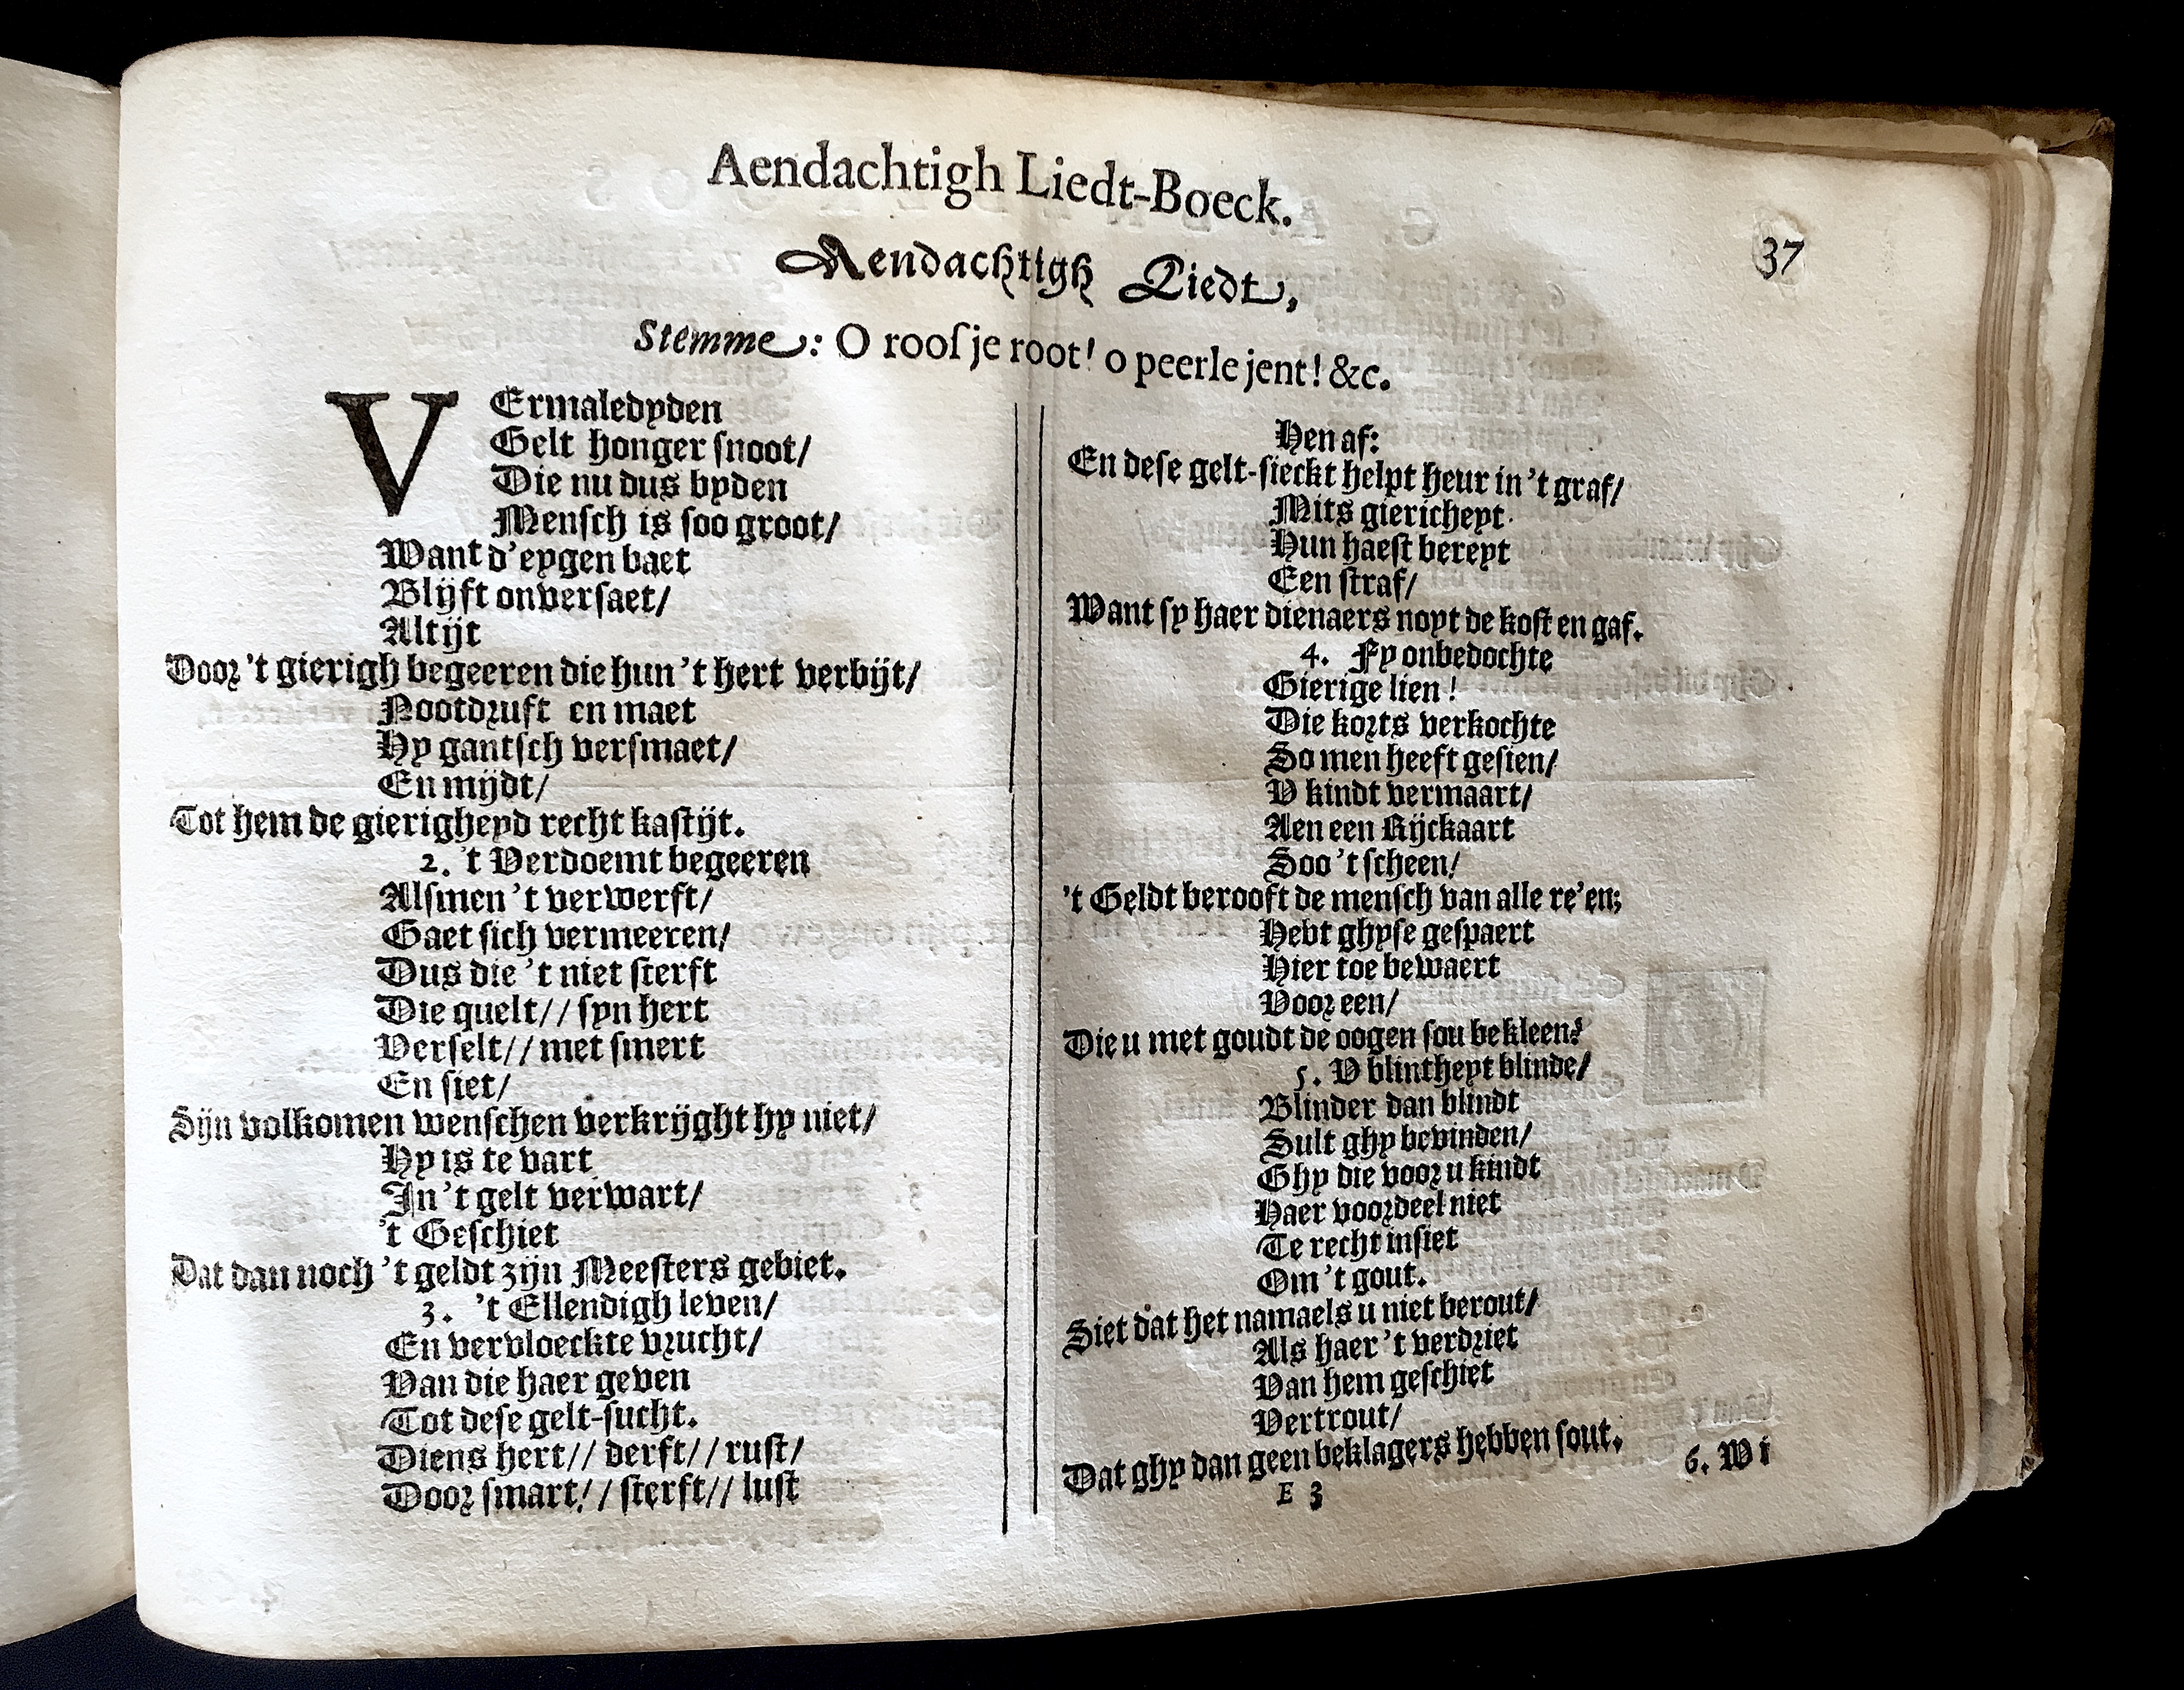 Aendachtigh Liedt-Boeck.
37
Aendachtigh Liedt,
Stemme: O roosje root! o peerle jent! &c.
VErmaledyden
Gelt honger snoot/
Die nu dus byden
Mensch is soo groot/
Want d'eygen baet
Blijft onversaet/
Altijt
Door 't gierigh begeeren die hun 't hert verbijt/
Nootdruft en maet
Hy gantsch versmaet/
En mijdt/
Tot hem de gierigheyd recht kastijt.
2. 't Verdoemt begeeren
Alsmen 't verwerft/
Gaet sich vermeeren/
Dus die 't niet sterft
Die quelt// syn hert
Verselt// met smert
En siet/
Sijn volkomen wenschen verkrijght hy niet/
Hy is te vart
In 't gelt verwart/
't Geschiet
Dat dan noch 't geldt zijn Meesters gebiet.
3. 't Ellendigh leven/
En vervloeckte vrucht/
Van die haer geven
Tot dese gelt-sucht.
Diens hert// derft// rust/
Door smart// sterft// lust
Hen af:
En dese gelt-sieckt helpt heur in 't graf/
Mits giericheyt
Hun haest bereyt
Een straf/
Want sy haer dienaers noyt de kost en gaf.
4. Fy onbedochte
Gierige lien!
Die korts verkochte
So men heeft gesien/
V kindt vermaart/
Aen een Rijckaart
Soo 't scheen/
't Geldt berooft de mensch van alle re'en;
Hebt ghyse gespaert
Hier toe bewaert
Voor een/
Die u met goudt de oogen sou bekleen?
5. V blintheyt blinde/
Blinder dan blindt
Sult ghy bevinden/
Ghy die voor u kindt
Haer voordeel niet
Te recht insiet
Om 't gout.
Siet dat het namaels u niet berout/
Als haer 't verdriet
Van hem geschiet
Vertrout/
Dat ghy dan geen beklagers hebben sout.
E 3
6. Wi